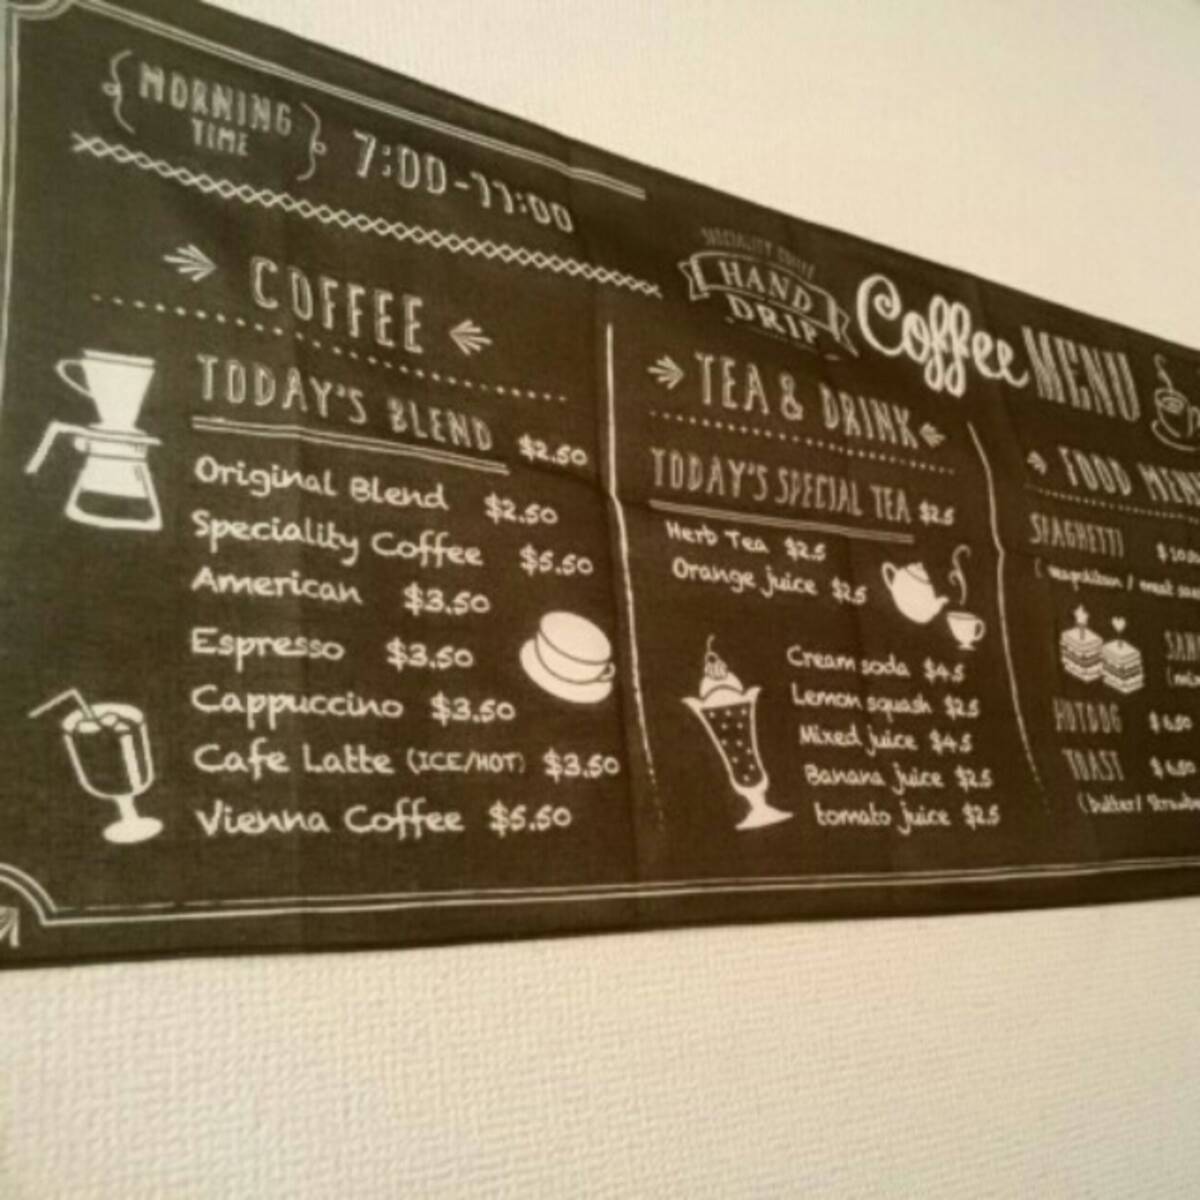 MORNING
TIME
7:00-11:00
SPECIALITY COFFEE
HAND
DRIP
Coffee MENU
COFFEE
TODAY'S BLEND $2.50
Original Blend $2.50
Speciality Coffee $5.50
American $3.50
Espresso $3.50
Cappuccino $3.50
Cafe Latte (ICE/HOT) $3.50
Vienna Coffee $5.50
TEA & DRINK
TODAY'S SPECIAL TEA $2.5
Herb Tea $2.5
Orange juice $2.5
Cream soda $4.5
Lemon squash $2.5
Mixed juice $4.5
Banana juice $2.5
tomato juice $2.5
FOOD MENU
SPAGHETTI
(neapolitan / meat
HOTDOG $6.50
TOAST $6.50
(butter/